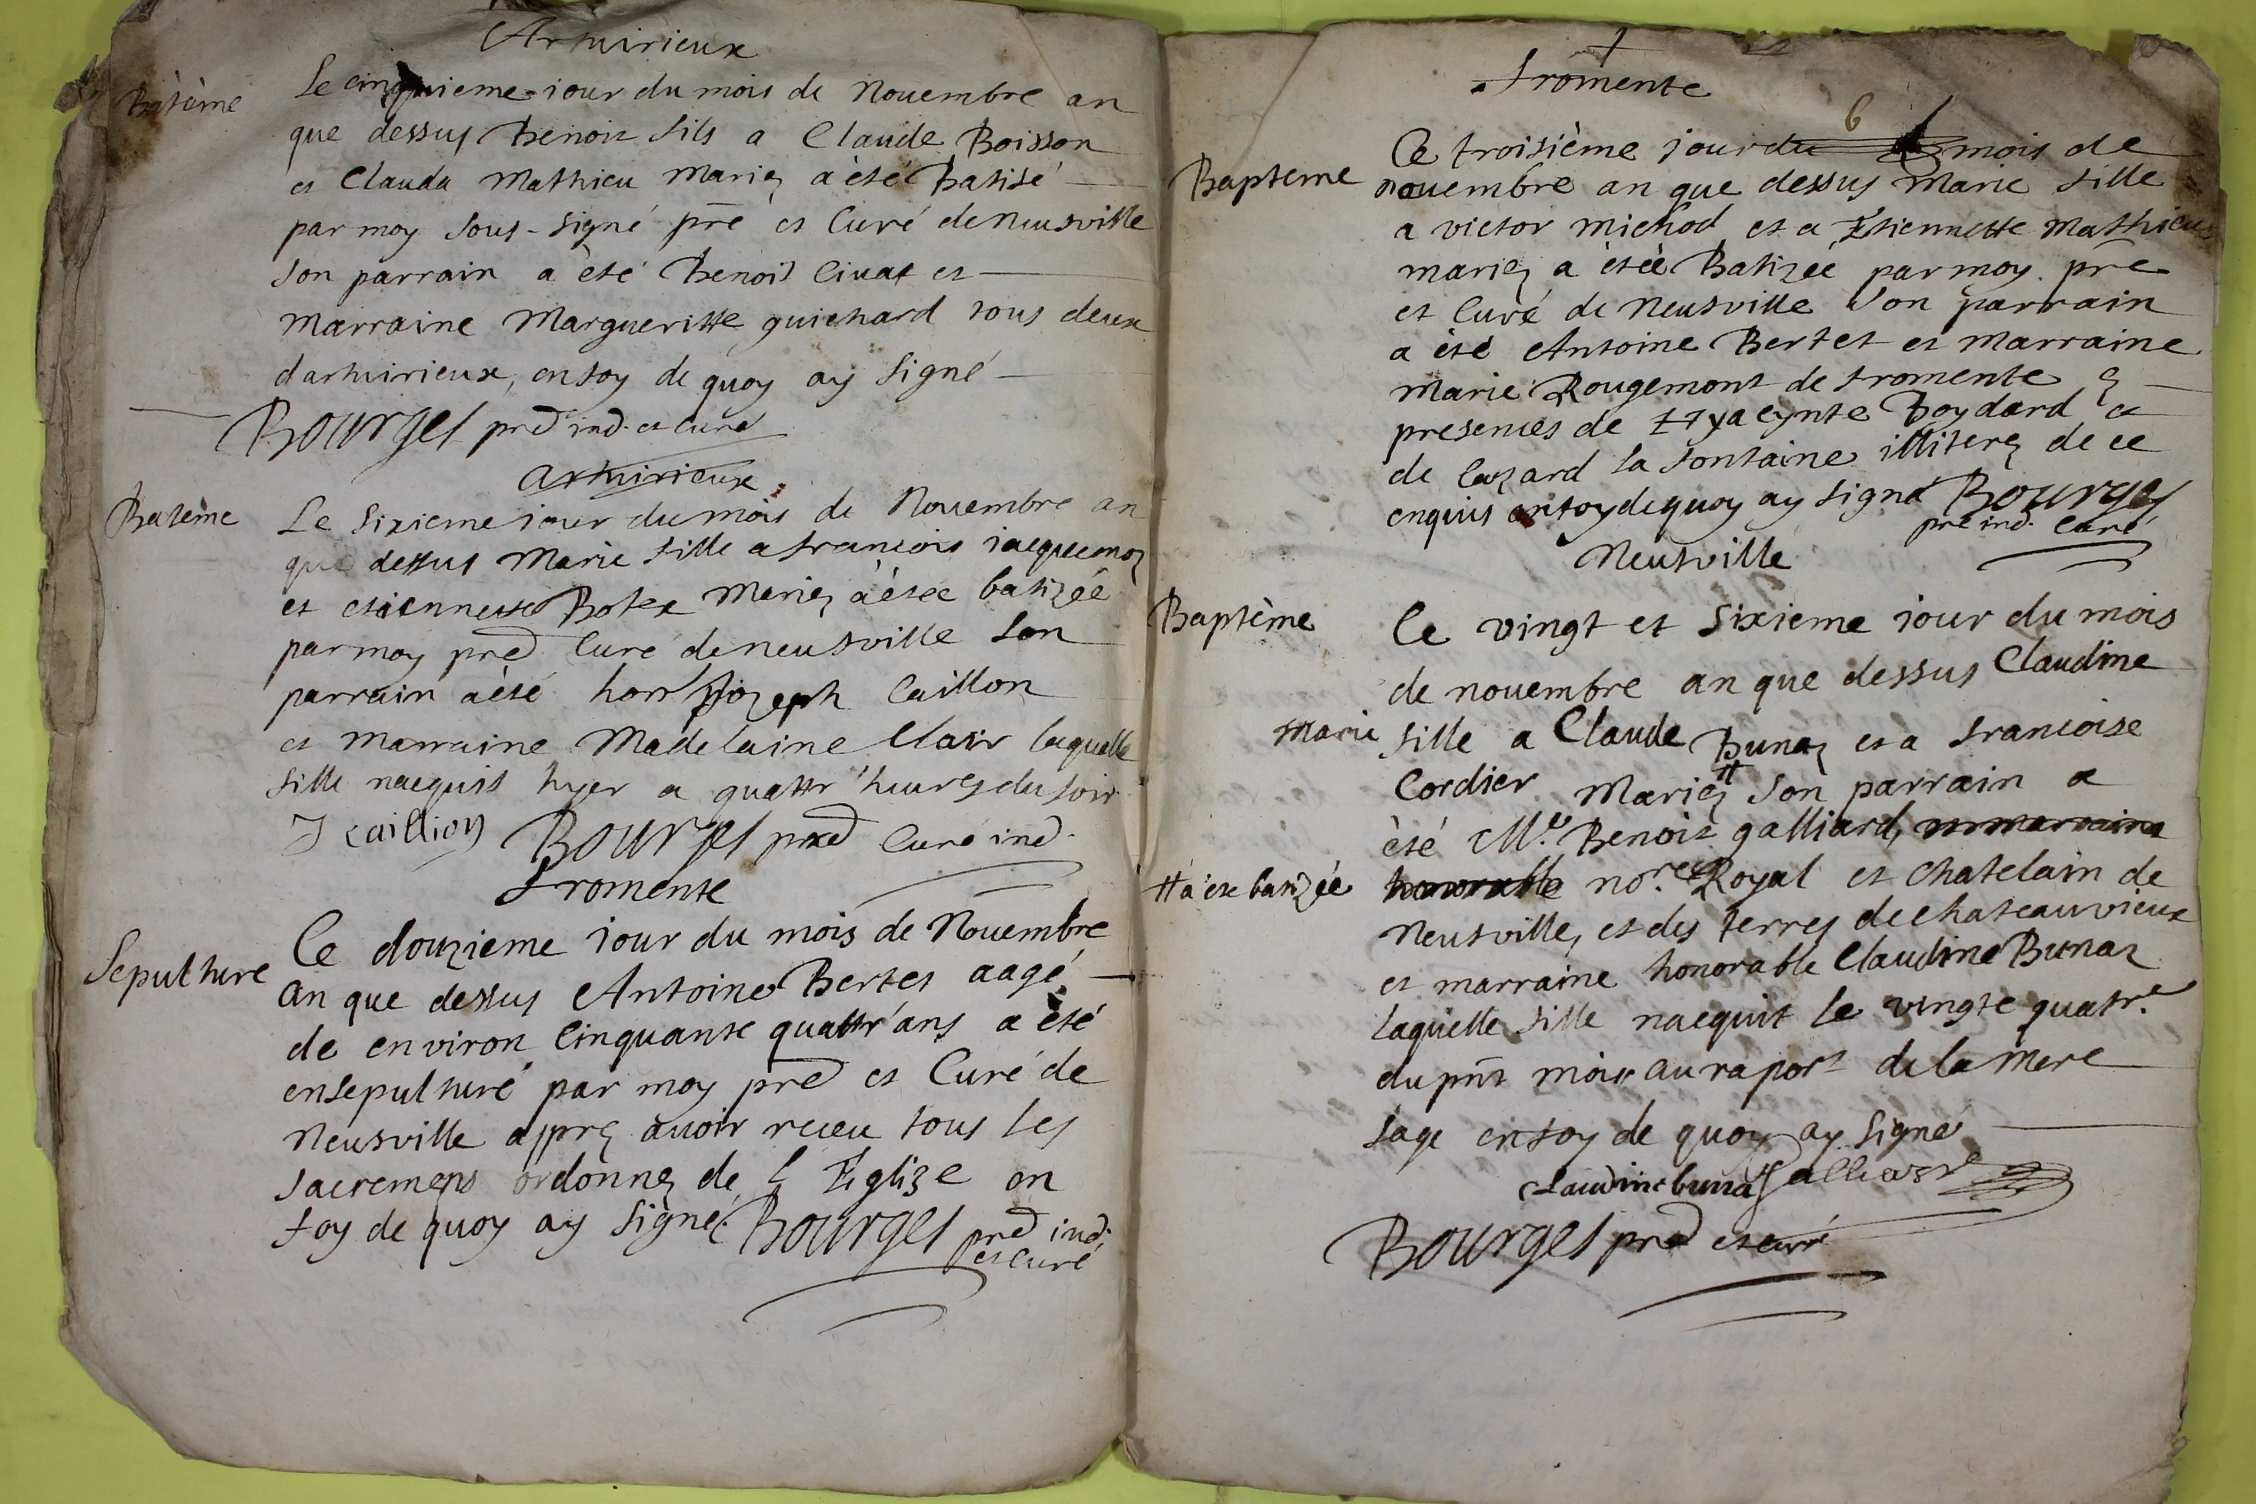 Arthuirieux
Batème
Le cinquieme iour du mois de Nouembre an
que dessus Benoit fils a Claude Boisson
et Clauda Mathieu Mariez a èté Batisé
par moy Sous-Signé pre et Curé de neusville
Son parrain a èté Benoit Ciuat et
Marraine Margueritte guichard tous deux
darthuirieux, en foy de quoy ay Signé
Bourges pre ind. et Curé
arthuirieux
Batème
Le Sixieme iour du mois de Nouembre an
que dessus Marie fille a francois iacquemoz
et etiennette Mariez à étée batizéé
par moy pre Curé de neusville Son
parrain a èté honr Jozeph Caillon
et marraine Madelaine Clair laquelle
fille nacquit hyer a quattr'heures du Soir
J Caillion Bourges pre Curé ind.
fromente
Sepulture
Ce douzieme iour du mois de Nouembre
an que dessus Antoine Bertet aagé
de environ Cinquante quattr'ans a èté
ensepulturé par moy pre et Curé de
Neusville apprez auoir receu tous les
Sacremens ordonnez de L Eglize en
foy de quoy ay Signé. Bourges pre ind.
et Curé
fromente
6
Bapteme
Ce troisième jour du mois de
nouembre an que dessus Marie fille
a victor michod et a Etiennette Mathieu
mariez a étéé Batizéé par moy pre
et Curé de Neusville Son parrain
a èté Antoine Bertet et Marraine
Marie Rougemont de fromente
presences de Hyacynte Boydard et
de Lazard la fontaine illiterez de ce
enquis en foy de quoy ay Signé Bourges
pre ind. Curé
Neusville
Baptème
Ce vingt et Sixieme iour du mois
de nouembre an que dessus Claudine
Marie fille a Claude Bunaz et a francoise
Cordier Mariez # Son parrain a
èté Me. Benoit galliard, et marraine
# a été batizéé honorable nore. Royal et Chatelain de
Neusville, et des terres de chateauvieux
et marraine honorable Claudine Bunaz
Laquelle fille nacquit le vingte quatre.
du pnt mois au raport de la Mere
Sage en foy de quoy ay Signé
Claudine buna Galliard
Bourges pre et curé